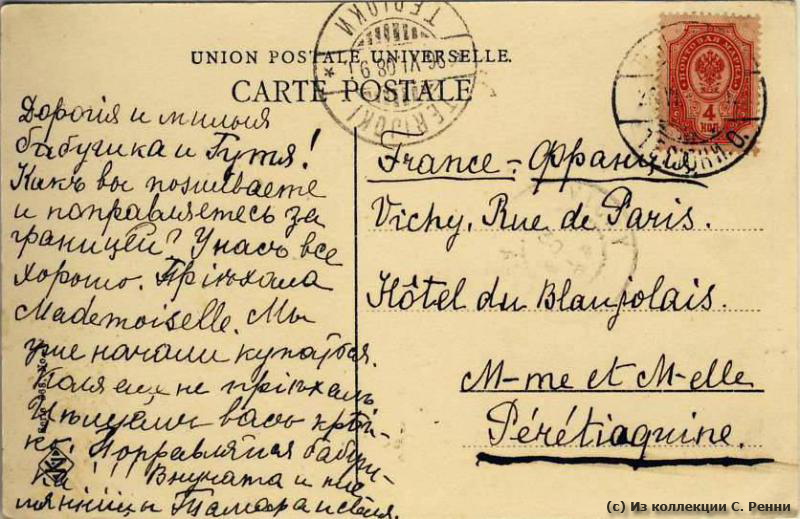 UNION POSTALE UNIVERSELLE.
CARTE POSTALE
TERIJOKI
ТЕРІОКИ
ПОЧТОВАЯ МАРКА
4
КОП
Дорогія и милыя
бабушка и Гутя!
Какъ вы поживаете
и поправляетесь за
границей? У насъ все
хорошо. Пріѣхала
Mademoiselle. Мы
уже начали купаться.
Коля еще не пріѣхалъ
Цѣлуемъ васъ крѣп-
ко. Поправляйся бабуш-
ка! Внучата и пле
мянницы Тамара и
France-Франція
Vichy, Rue de Paris.
Hôtel du Blaujolais.
M-me et M-elle
Pérétiaguine.
(c) Из коллекции С. Ренни